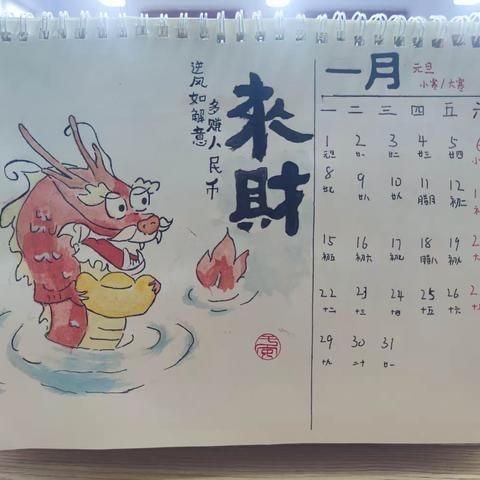 逆风如解意
多赚人民币
來財
一月
元旦
小寒/大寒
一 二 三 四 五 六
1 2 3 4 5
元旦 廿一 廿二 廿三 廿四
8 9 10 11 12
廿七 廿八 廿九 腊月 初二
15 16 17 18 19
初五 初六 初七 腊八 初九
22 23 24 25 26
十二 十三 十四 十五 十六
29 30 31
十九 二十 廿一